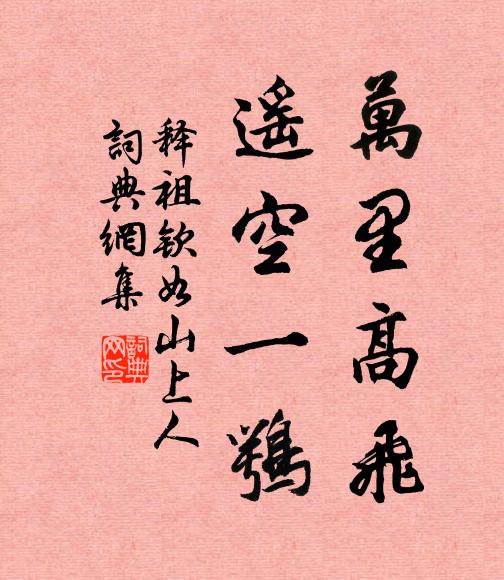 萬里高飛
遙空一鶚
释祖欽如山上人
詞典網集
詞典
网印